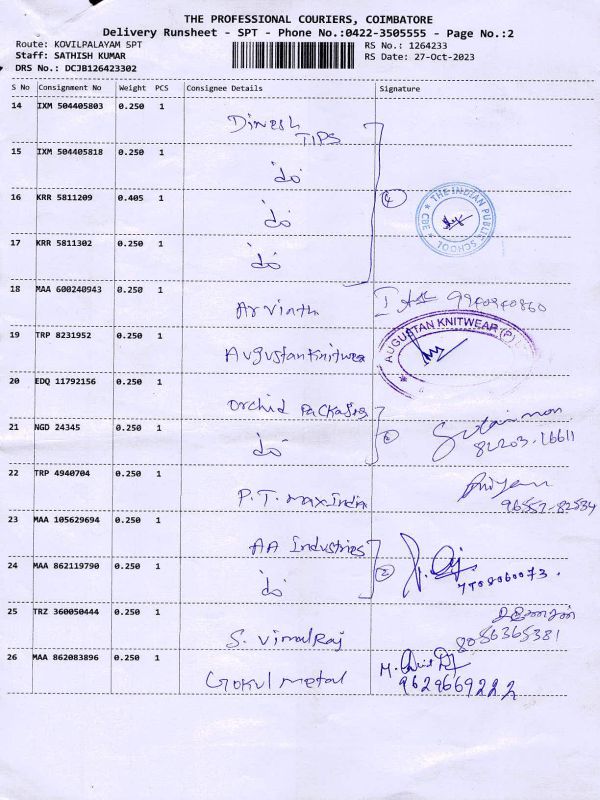 THE PROFESSIONAL COURIERS, COIMBATORE
Delivery Runsheet - SPT - Phone No.:0422-3505555 - Page No.:2
Route: KOVILPALAYAM SPT
RS No.: 1264233
Staff: SATHISH KUMAR
RS Date: 27-Oct-2023
DRS No.: DCJB126423302
S No Consignment No Weight PCS Consignee Details Signature
14 IXM 504405803 0.250 1 Dinesh TIPS
15 IXM 504405818 0.250 1 do
16 KRR 5811209 0.405 1 do 4
THE INDIAN PUBLIC SCHOOL CBE
17 KRR 5811302 0.250 1 do
18 MAA 600240943 0.250 1 Arvinth 9940940860
19 TRP 8231952 0.250 1 Augustan Knitwea
AUGUSTAN KNITWEAR (P)
20 EDQ 11792156 0.250 1 Orchid Packages
21 NGD 24345 0.250 1 do 82203.16611
22 TRP 4940704 0.250 1 P.T. Max India 96557-82534
23 MAA 105629694 0.250 1 AA Industries
24 MAA 862119790 0.250 1 do 2 7708060073.
25 TRZ 360050444 0.250 1 S. Vimalraj 8056365381
26 MAA 862083896 0.250 1 Gokul metal 9629669222